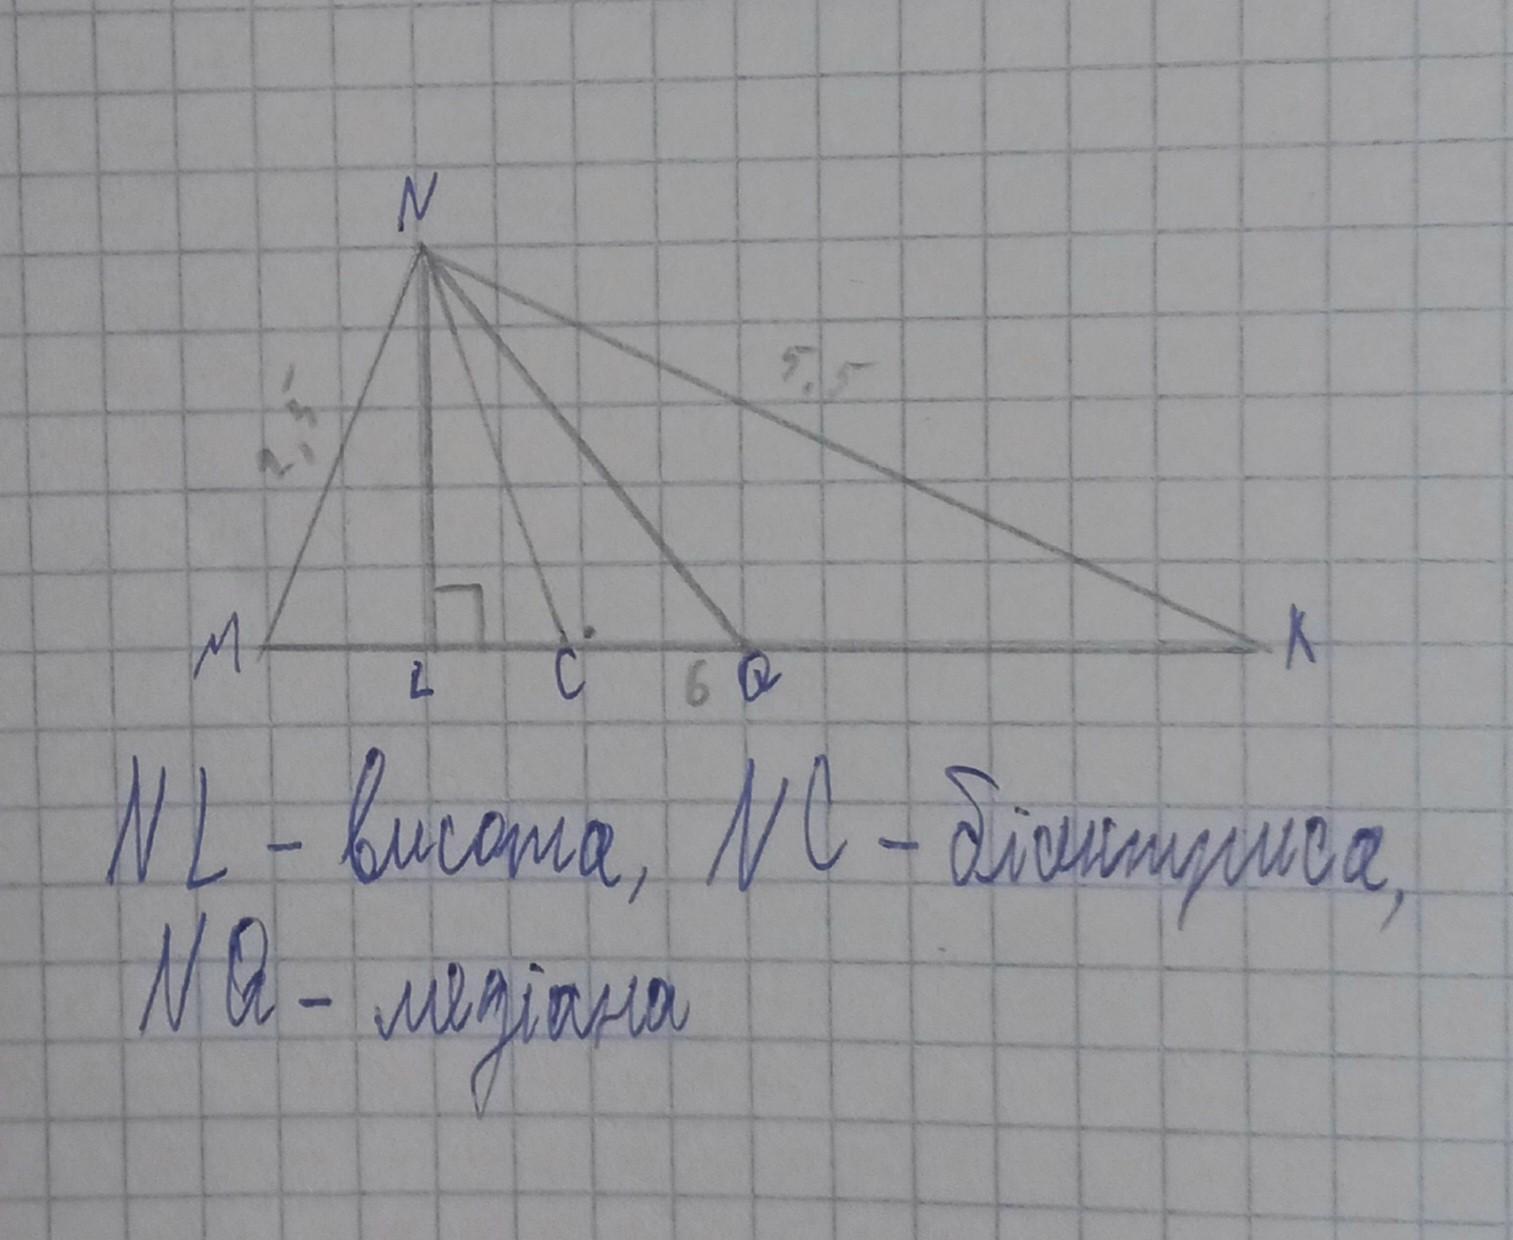 N
5,5
2,5
M L C 6 Q K
NL - висота, NC - бісектриса,
NQ - медіана